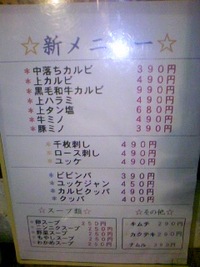 ☆新メニュー☆
*中落ちカルビ 390円
*上カルビ 490円
*黒毛和牛カルビ 990円
*上ハラミ 490円
*上タン塩 680円
*牛ミノ 490円
*豚ミノ 390円
*千枚刺し 490円
*ロース刺し 490円
*ユッケ 490円
*ビビンバ 390円
*ユッケジャン 450円
*カルビクッパ 490円
*クッパ 400円
☆スープ類☆
*卵スープ
*ニンニクスープ
*野菜スープ
*もやしスープ
*わかめスープ
☆その他☆
*キムチ
*カクテキ
*ナムル